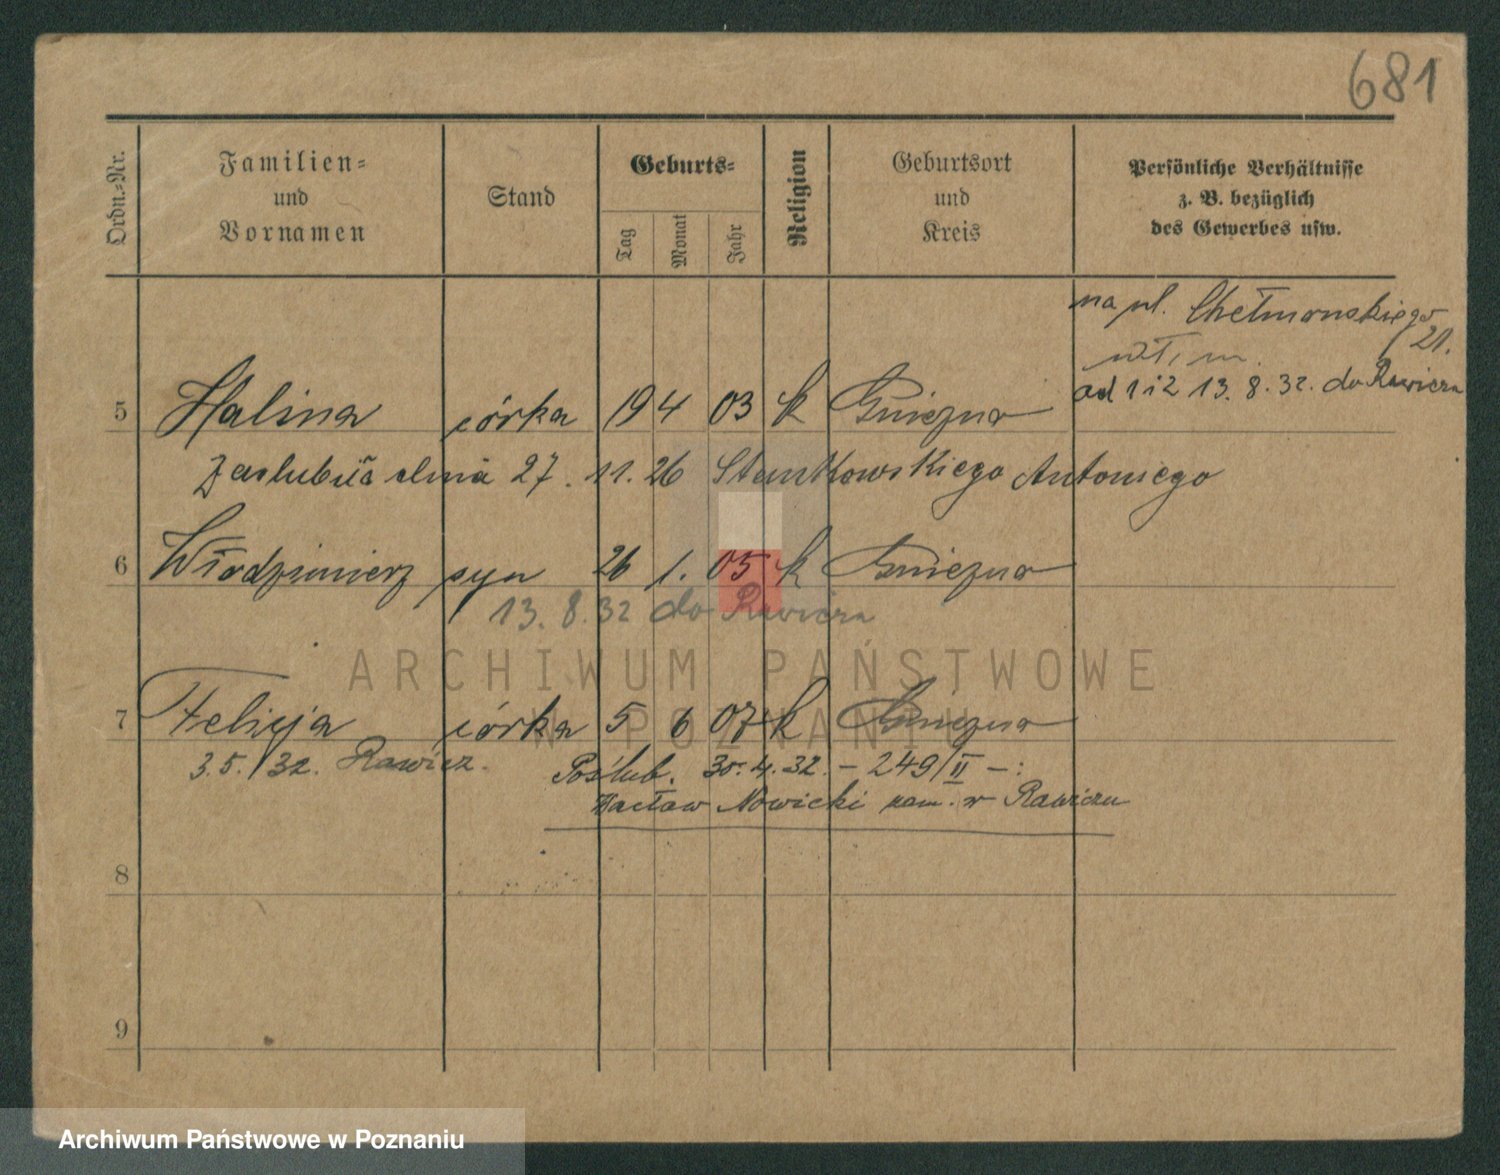 681
Ordn.-Nr.
Familien-
und
Vornamen
Stand
Geburts-
Tag
Monat
Jahr
Religion
Geburtsort
und
Kreis
Persönliche Verhältnisse
z. B. bezüglich
des Gewerbes usw.
na pl. Chełmonskiego
21.
wł. m.
od 1 i 2 13. 8. 32. do Rawicza
5 Halina córka 19 4 03 k Gniezno
dnia 27. 11. 26 Stankowskiego Antoniego
6 Włodzimierz syn 26 1. 05 k Gniezno
13. 8. 32 do Rawicza
7 Felicja córka 5 6 07 k Gniezno
3. 5. 32. Rawicz.
Poślub. 30. 4. 32. - 249/II - :
Wacław Nowicki zam. w Rawiczu
8
9
ARCHIWUM PAŃSTWOWE
W POZNANIU
Archiwum Państwowe w Poznaniu